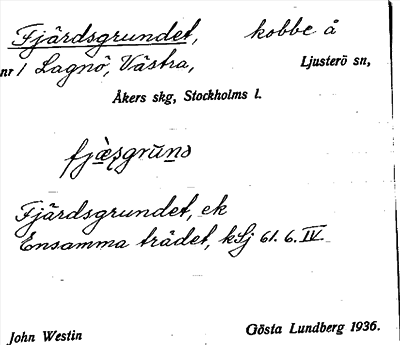 Fjärdsgrundet, kobbe å
nr 1 Lagnö, Västra, Ljusterö sn,
Åkers skg, Stockholms l.
Fjärdsgrundet, ek
Ensamma trädet, kSj 61. 6. IV.
John Westin Gösta Lundberg 1936.